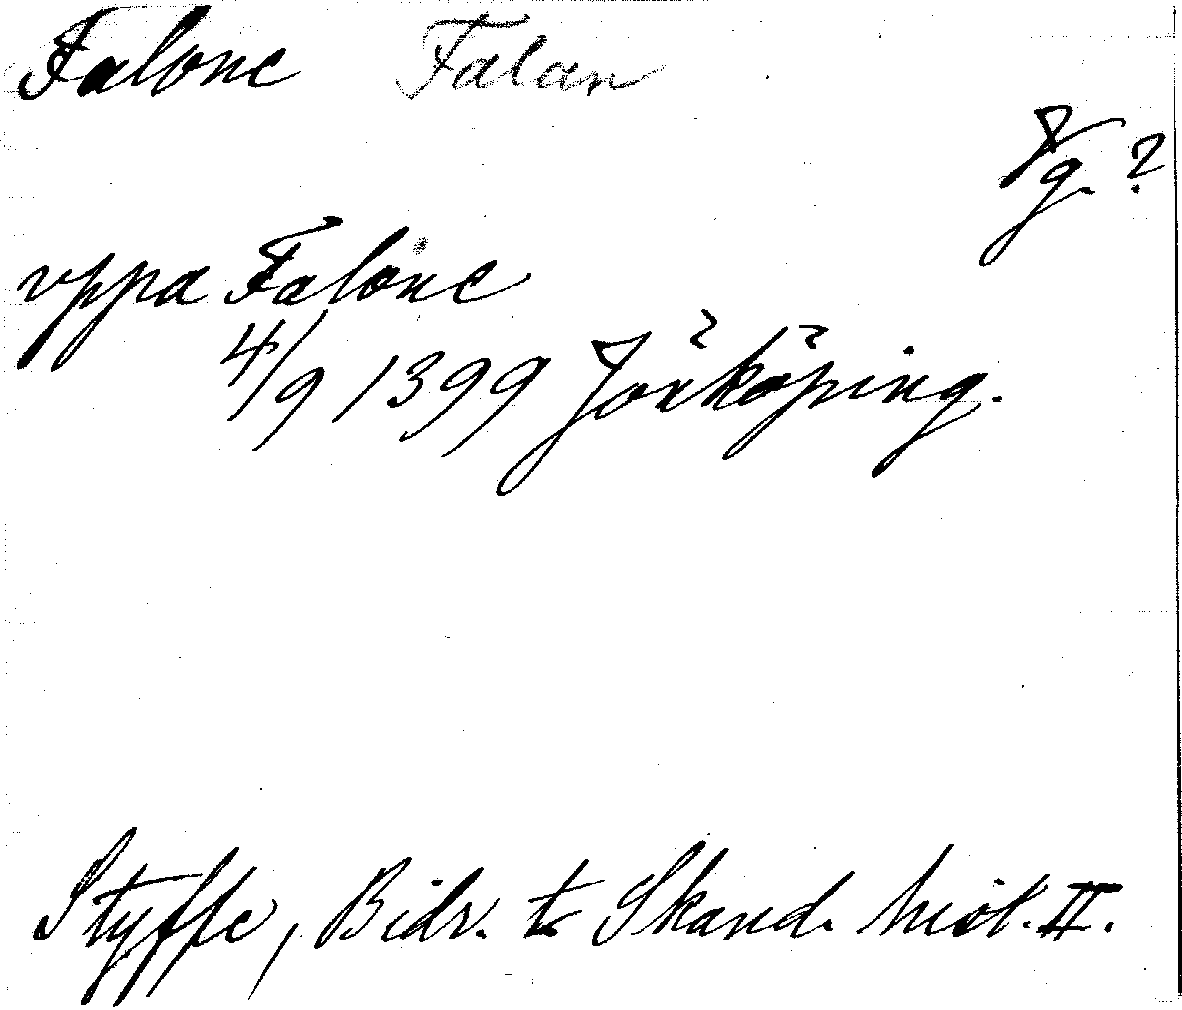 Falone Falan
Vg. ?
vppa Falone
4/9 1399 Jönköping.
Styffe, Bidr. t. Skand. hist. II.